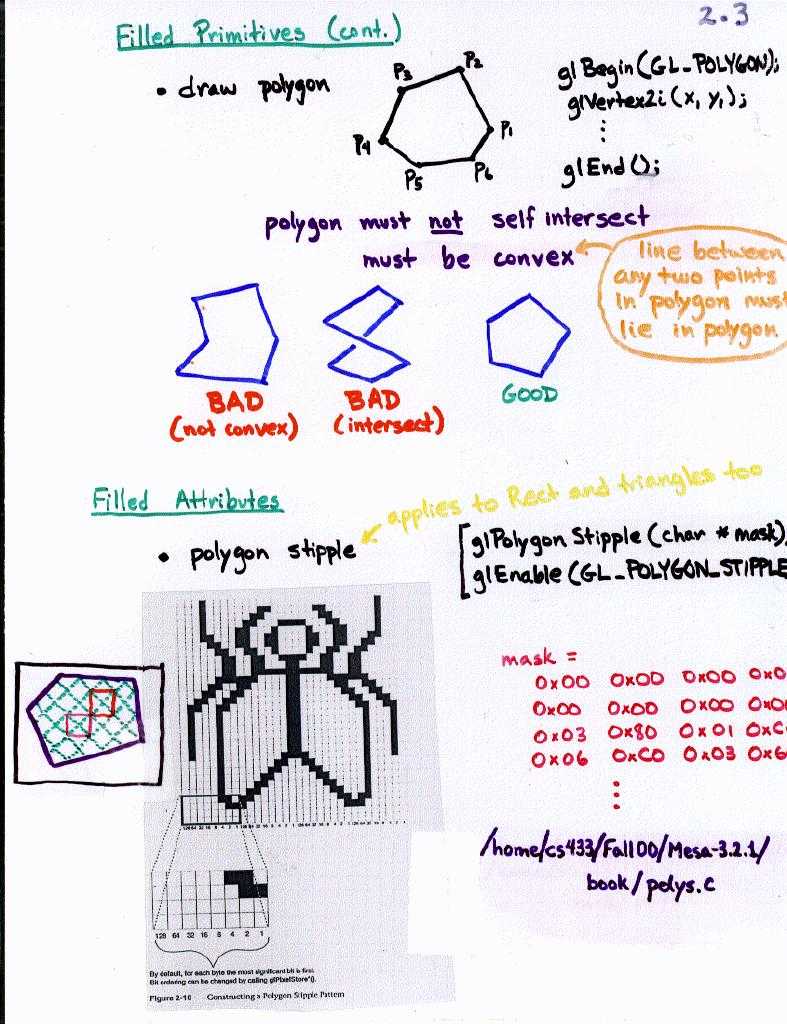 2.3
Filled Primitives (cont.)
• draw polygon
P3
P2
P4
P1
P5
P6
glBegin(GL_POLYGON);
glVertex2i(x, y,);
⋮
glEnd();
polygon must not self intersect
must be convex
line between
any two points
in polygon must
lie in polygon
BAD
(not convex)
BAD
(intersect)
GOOD
Filled Attributes
applies to Rect and triangles too
• polygon stipple
glPolygon Stipple (char * mask)
glEnable (GL_POLYGON_STIPPLE
mask =
0x00 0x00 0x00 0x0
0x00 0x00 0x00 0x0
0x03 0x80 0x01 0xC
0x06 0xC0 0x03 0x6
⋮
/home/cs433/Fall00/Mesa-3.2.1/
book/polys.c
128 64 32 16 8 4 2 1 128 64 32 16 8 4 2 1 128 64 32 16 8 4 2 1 128 64 32 16 8 4 2 1
128 64 32 16 8 4 2 1
By default, for each byte the most significant bit is first.
Bit ordering can be changed by calling glPixelStore*().
Figure 2-10 Constructing a Polygon Stipple Pattern